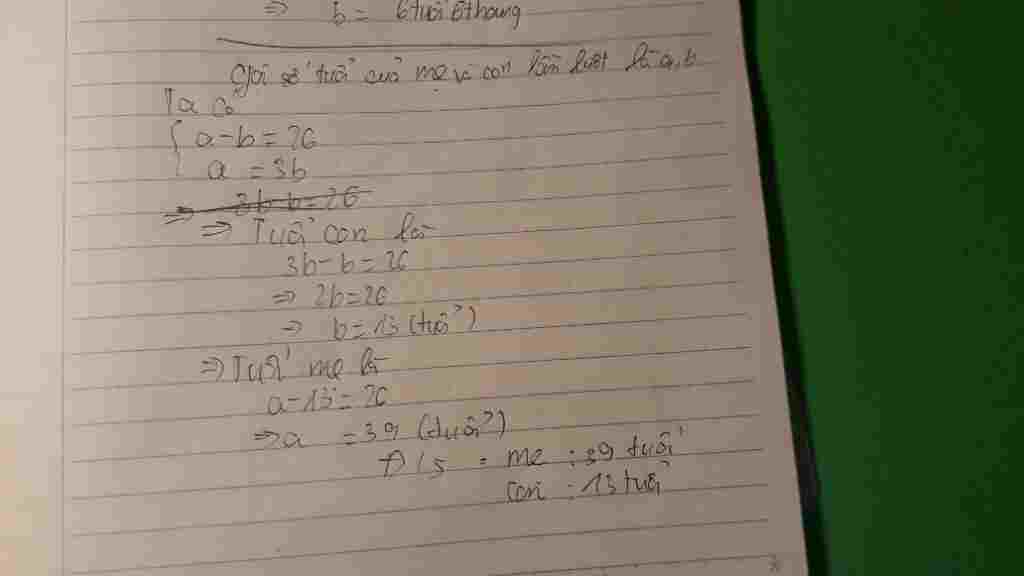 => b = 6 tuổi 6 thang
Gọi số tuổi của mẹ và con lần lượt là a, b
Ta co
{ a - b = 26
a = 3b
=> 3b - b = 26
=> Tuổi con là
3b - b = 26
=> 2b = 26
=> b = 13 (tuổi)
=> Tuổi mẹ là
a - 13 = 26
=> a = 39 (tuổi)
Đ/s = mẹ : 39 tuổi
con : 13 tuổi